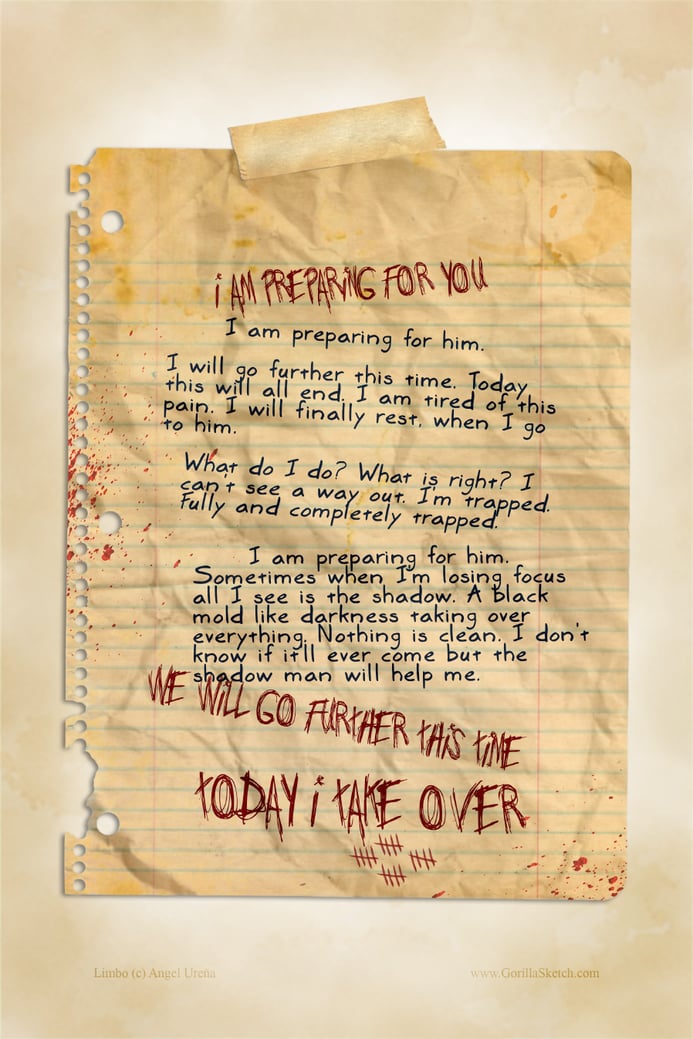 i AM PREPARiNG FOR YOU
I am preparing for him.
I will go further this time. Today
this will all end. I am tired of this
pain. I will finally rest, when I go
to him.
What do I do? What is right? I
can't see a way out. I'm trapped.
Fully and completely trapped.
I am preparing for him.
Sometimes when I'm losing focus
all I see is the shadow. A black
mold like darkness taking over
everything. Nothing is clean. I don't
know if it'll ever come but the
shadow man will help me.
WE WiLL GO FURtHER tHiS tiME
tODAY i tAKE OVER
Limbo (c) Angel Ureña
www.GorillaSketch.com